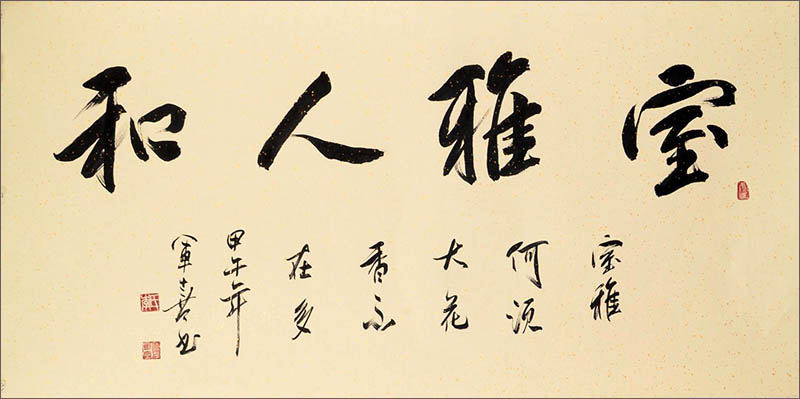 室雅人和
室雅
何须
大花
香不
在多
甲午年
军喜书